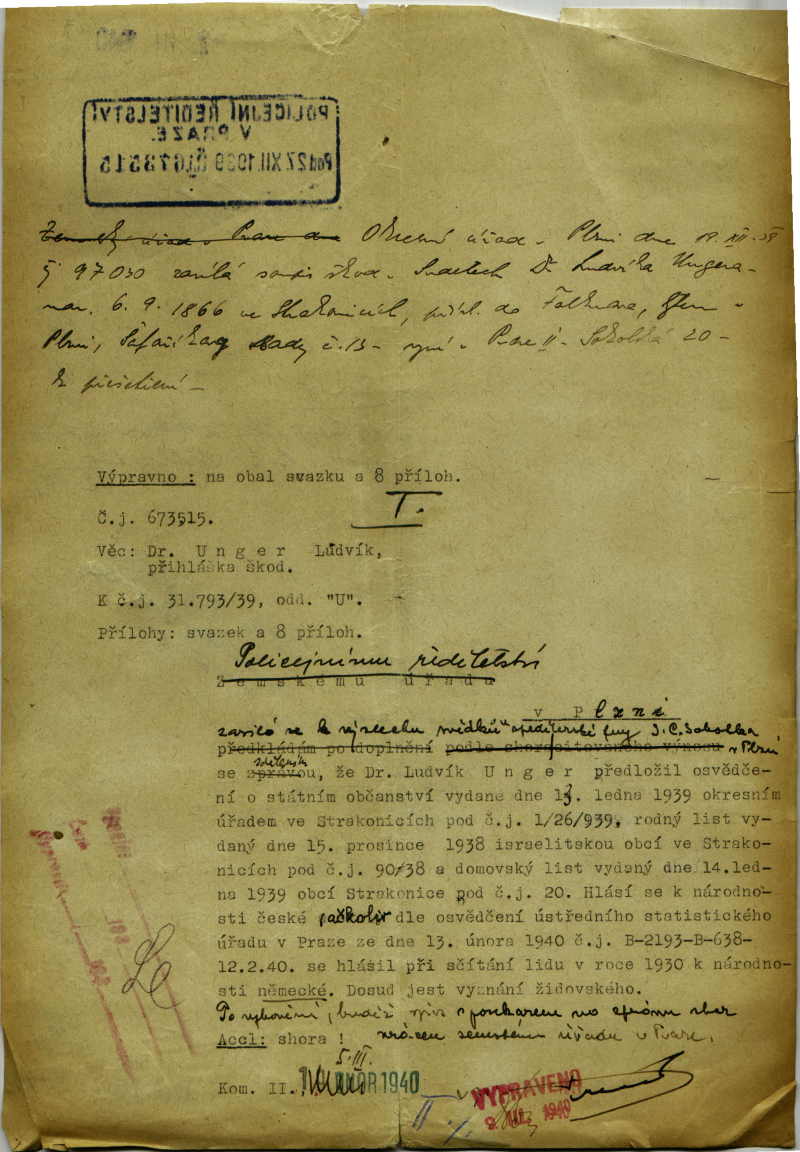 POLICEJNÍ ŘEDITELSTVÍ
V PRAZE.
27.XII.1939
Zemský úřad v Praze Okresní úřad v Plzni dne
97030 zasílá škod v Sudetech Dr. Ludvíka Ungera
nar. 6. 9. 1866 ve Strakonicích, přísl. do Falknova,
Plzni, Šafaříkovy sady č. 13 – nyní v Praze II – Sokolská 20 –
k přešetření –
Výpravno : na obal svazku a 8 příloh.
I.
Č.j. 673515.
Věc: Dr. U n g e r Lúdvík,
přihláška škod.
K č.j. 31.793/39, odd. "U".
Přílohy: svazek a 8 příloh.
Policejnímu ředitelství
Zemskému úřadu
v Plzni
zasílá se k výslechu svědků spediterské fmy J.C. Sobotka
předkládám po doplnění podle shora citovaného výnosu v Plzni
se sdělením zprávou, že Dr. Ludvík U n g e r předložil osvědče-
ní o státním občanství vydané dne 13. ledna 1939 okresním
úřadem ve Strakonicích pod č.j. 1/26/939, rodný list vy-
daný dne 15. prosince 1938 israelitskou obcí ve Strako-
nicích pod č.j. 90/38 a domovský list vydaný dne 14.led-
na 1939 obcí Strakonice pod č.j. 20. Hlásí se k národno-
sti české ačkoliv dle osvědčení ústředního statistického
úřadu v Praze ze dne 13. února 1940 č.j. B-2193-B-638-
12.2.40. se hlásil při sčítání lidu v roce 1930 k národno-
sti německé. Dosud jest vyznání židovského.
Po vykonání, budiž spis s poukazem na zprávu shor
Accl: shora ! vrácen zemskému úřadu v Praze.
5. III.
Kom. II. ÚNOR 1940
VYPRAVENO
1940
II